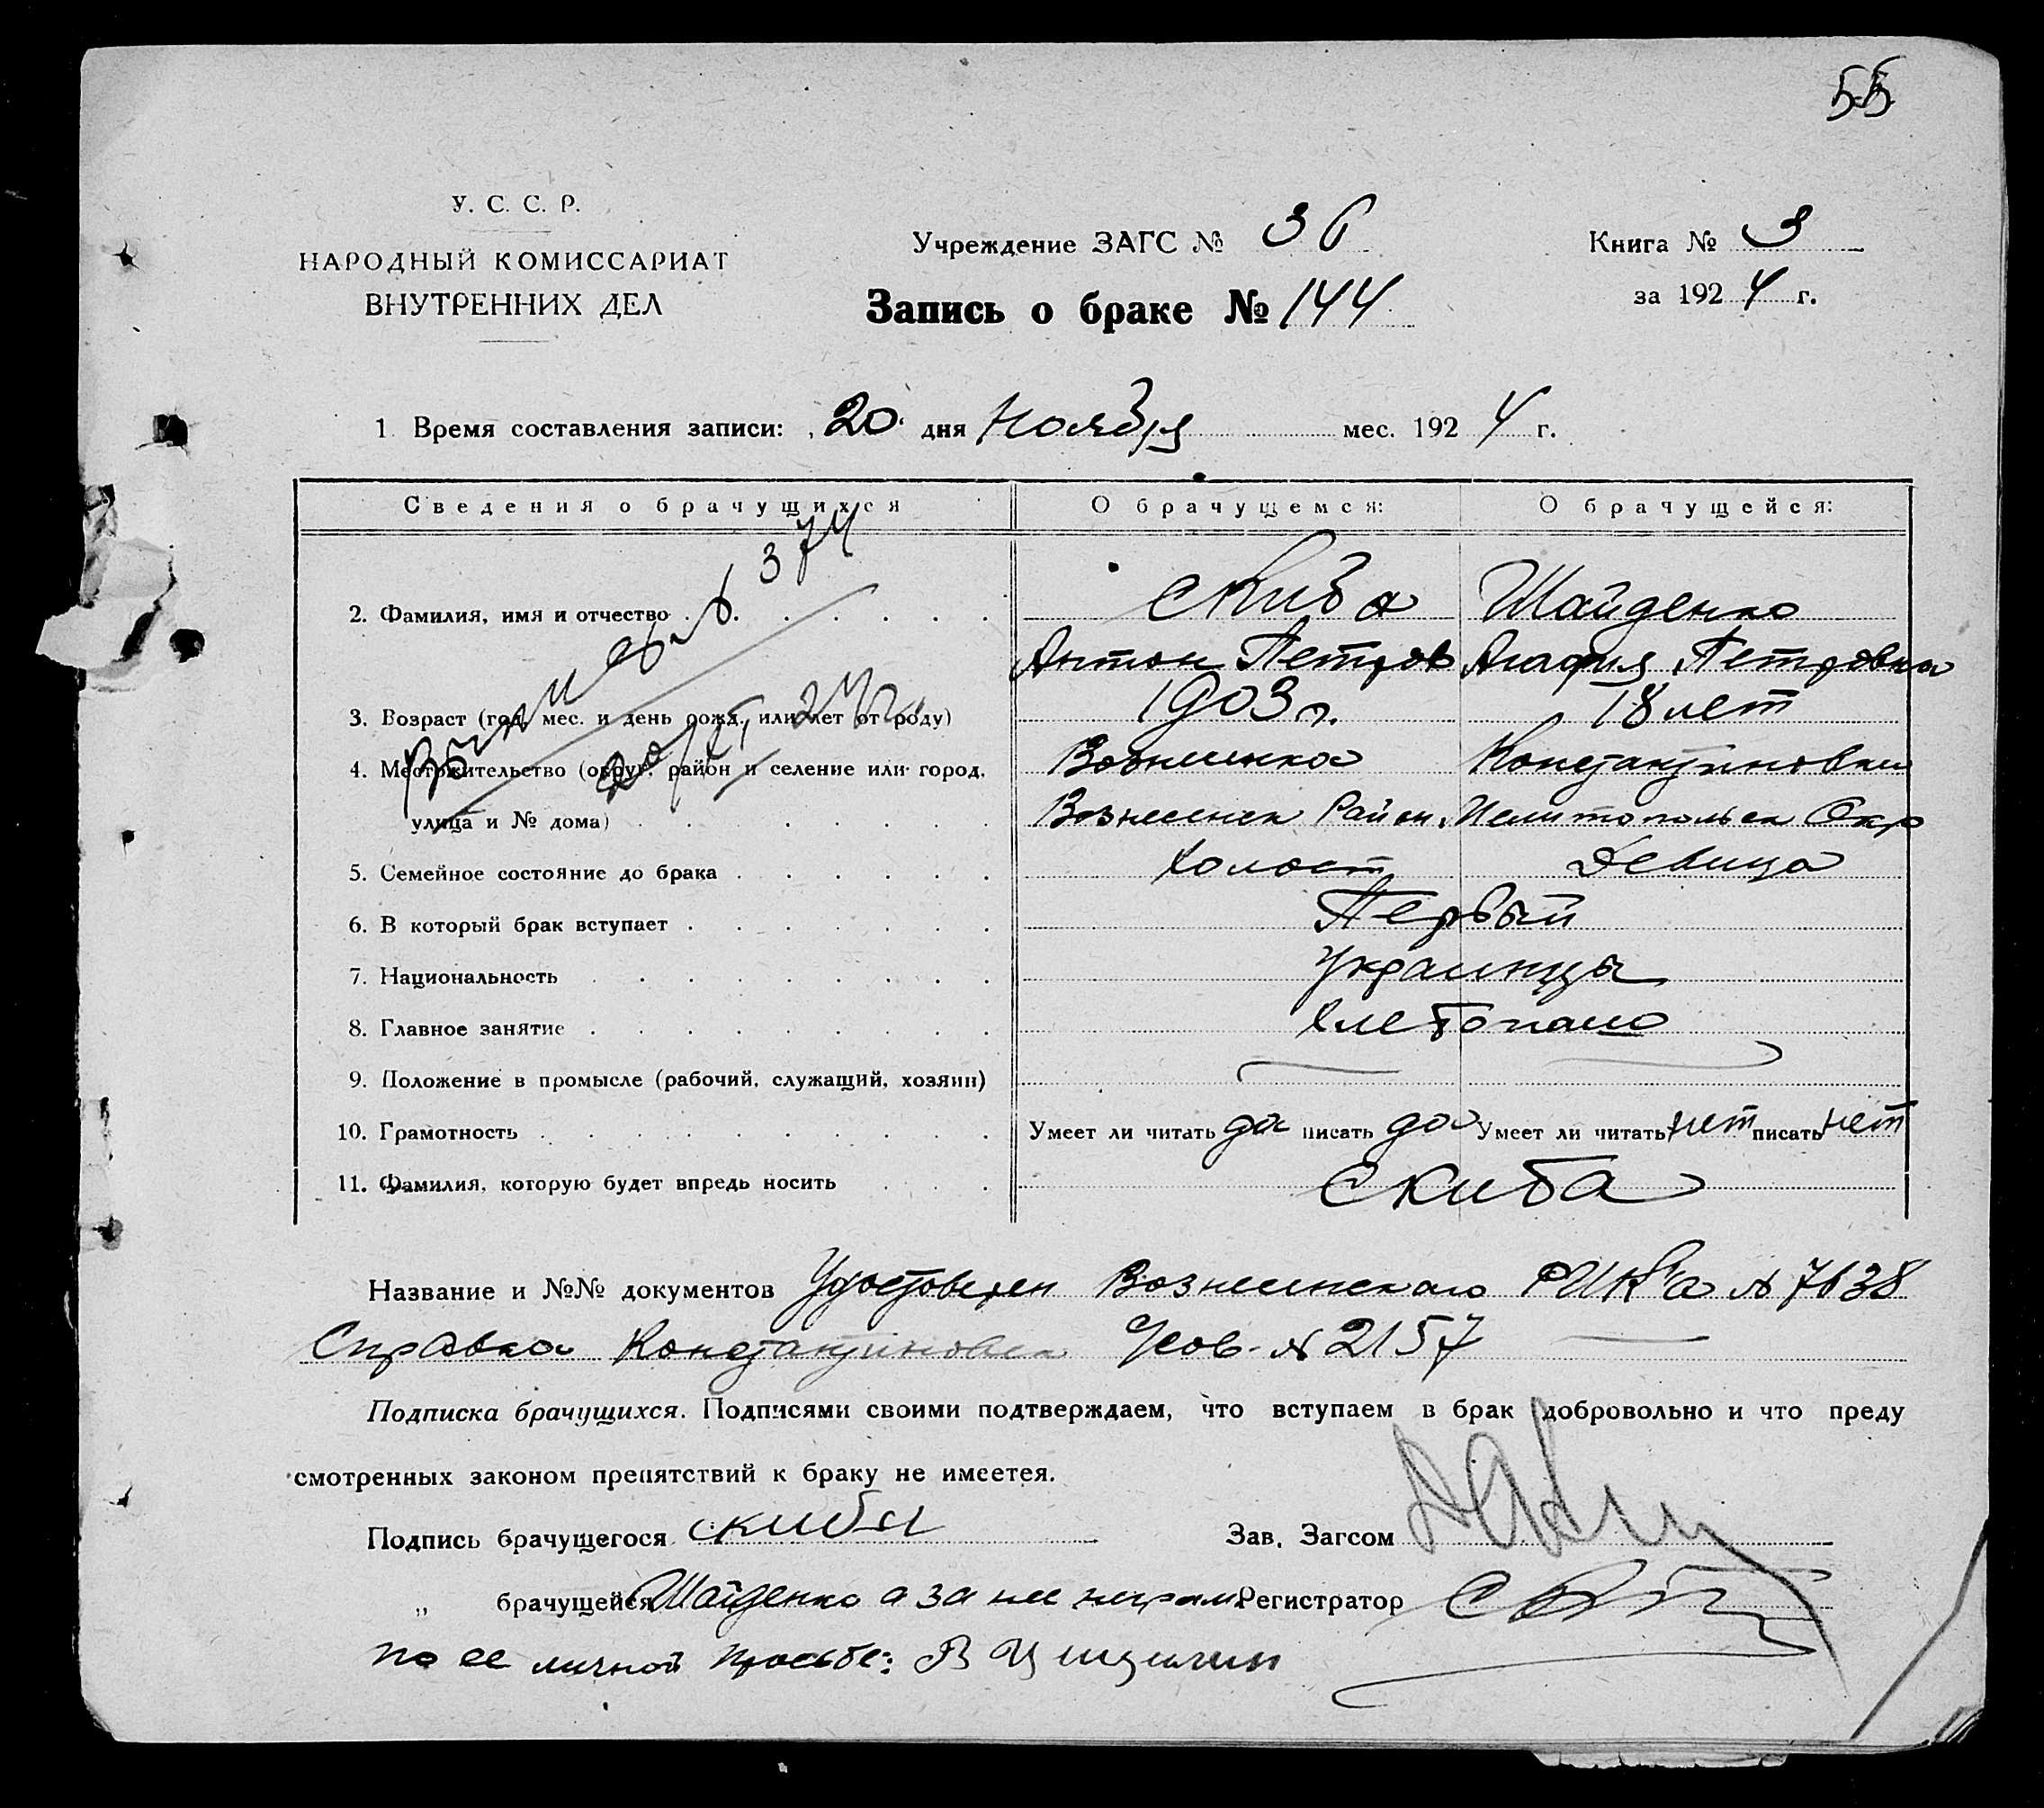 55
У. С. С. Р.
НАРОДНЫЙ КОМИССАРИАТ
ВНУТРЕННИХ ДЕЛ
Учреждение ЗАГС № 36
Запись о браке № 144
Книга № 3
за 1924 г.
1. Время составления записи: 20 дня Ноября мес. 1924 г.
Сведения о брачущихся О брачущемся: О брачущейся:
374
2. Фамилия, имя и отчество Скиба Шайденко
Антон Петров Агафия Петровна
3. Возраст (год, мес. и день рожд. или лет от роду) 1903 г. 18 лет
4. Местожительство (округ, район и селение или город, Вознесенка Константиновка
улица и № дома) Вознесенск Район. Мелитопольск Окр
5. Семейное состояние до брака холост Девица
6. В который брак вступает Первый
7. Национальность Украинцы
8. Главное занятие хлебопаш
9. Положение в промысле (рабочий, служащий, хозяин)
10. Грамотность Умеет ли читать да писать да Умеет ли читать нет писать нет
11. Фамилия, которую будет впредь носить Скиба
Название и №№ документов Удостоверен Вознесенского РИК'а № 7638
Справка Константиновск № 2157
Подписка брачущихся. Подписями своими подтверждаем, что вступаем в брак добровольно и что преду
смотренных законом препятствий к браку не имеется.
Подпись брачущегося скиба Зав. Загсом
„ брачущейся Шайденко а за нее неграм. Регистратор
по ее личной просьбе: В